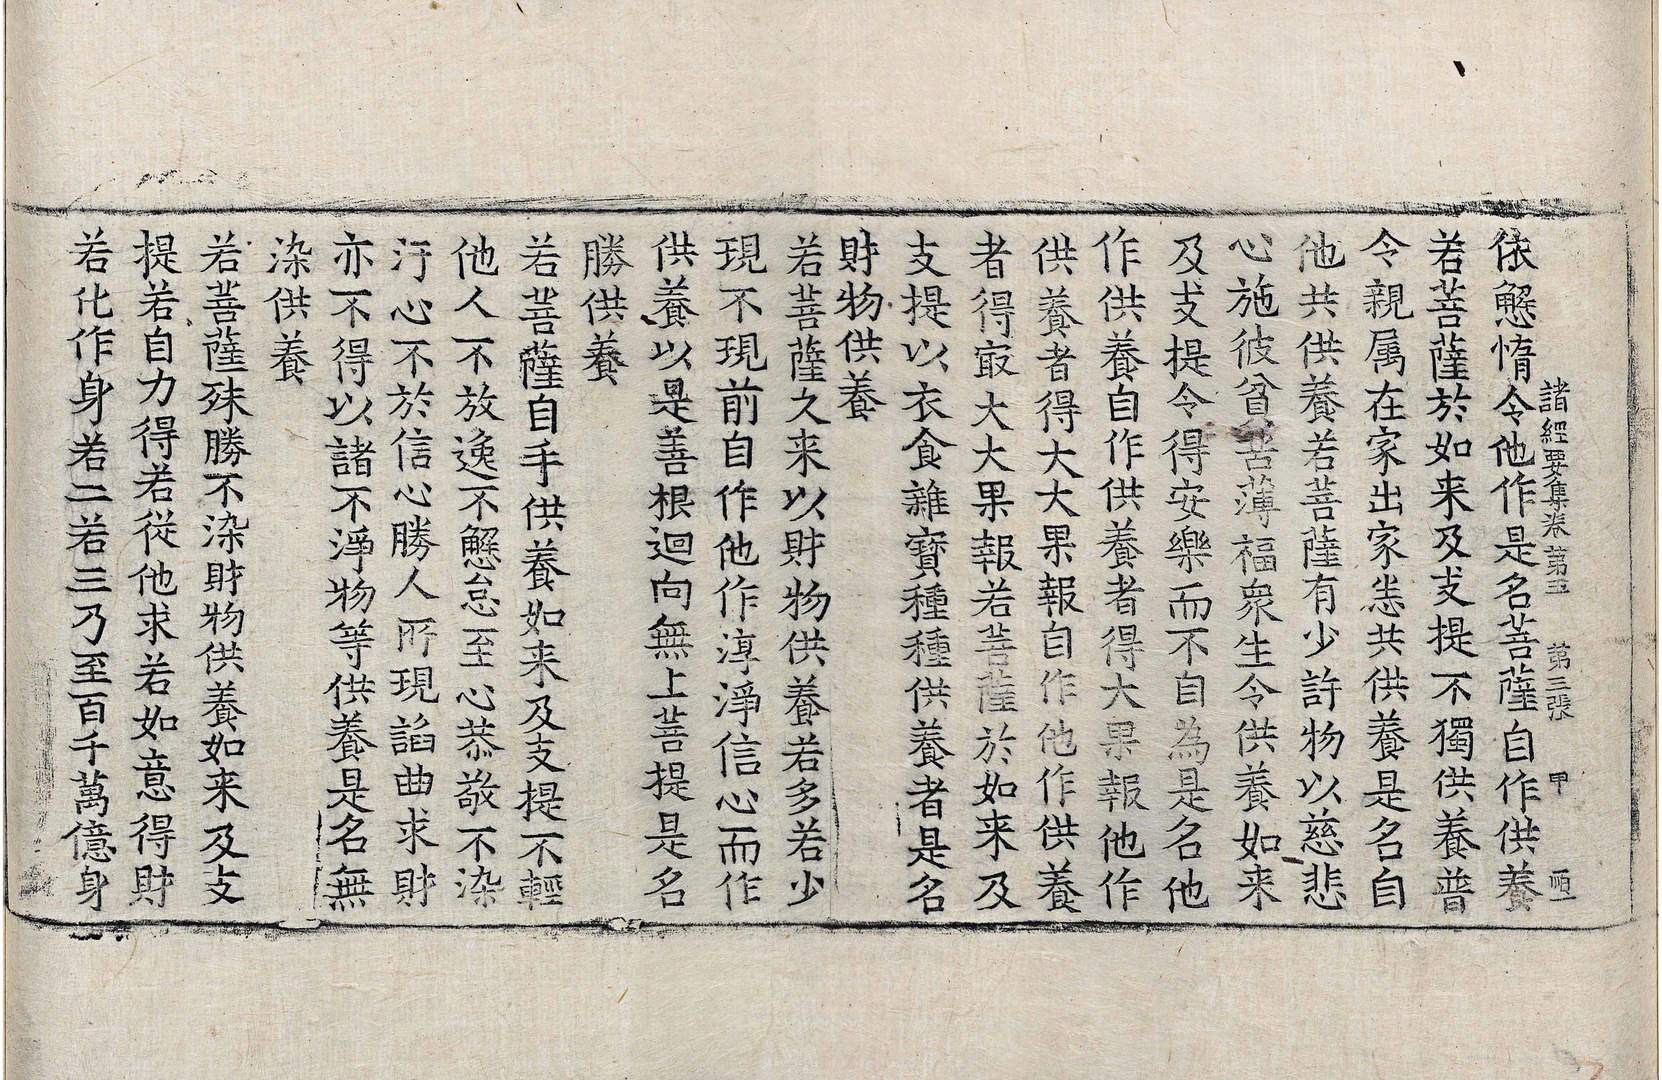 諸經要集卷第五 第三張 甲 順一
依懈惰令他作是名菩薩自作供養
若菩薩於如来及支提不獨供養普
令親属在家出家悉共供養是名自
他共供養若菩薩有少許物以慈悲
心施彼貧苦薄福衆生令供養如来
及支提令得安樂而不自為是名他
作供養自作供養者得大果報他作
供養者得大大果報自作他作供養
者得㝡大大果報若菩薩於如来及
支提以衣食雜寶種種供養者是名
財物供養
若菩薩久来以財物供養若多若少
現不現前自作他作淳淨信心而作
供養以是善根迴向無上菩提是名
勝供養
若菩薩自手供養如来及支提不輕
他人不放逸不懈怠至心恭敬不染
汙心不於信心勝人所現諂曲求財
亦不得以諸不淨物等供養是名無
染供養
若菩薩殊勝不染財物供養如来及支
提若自力得若從他求若如意得財
若化作身若二若三乃至百千萬億身